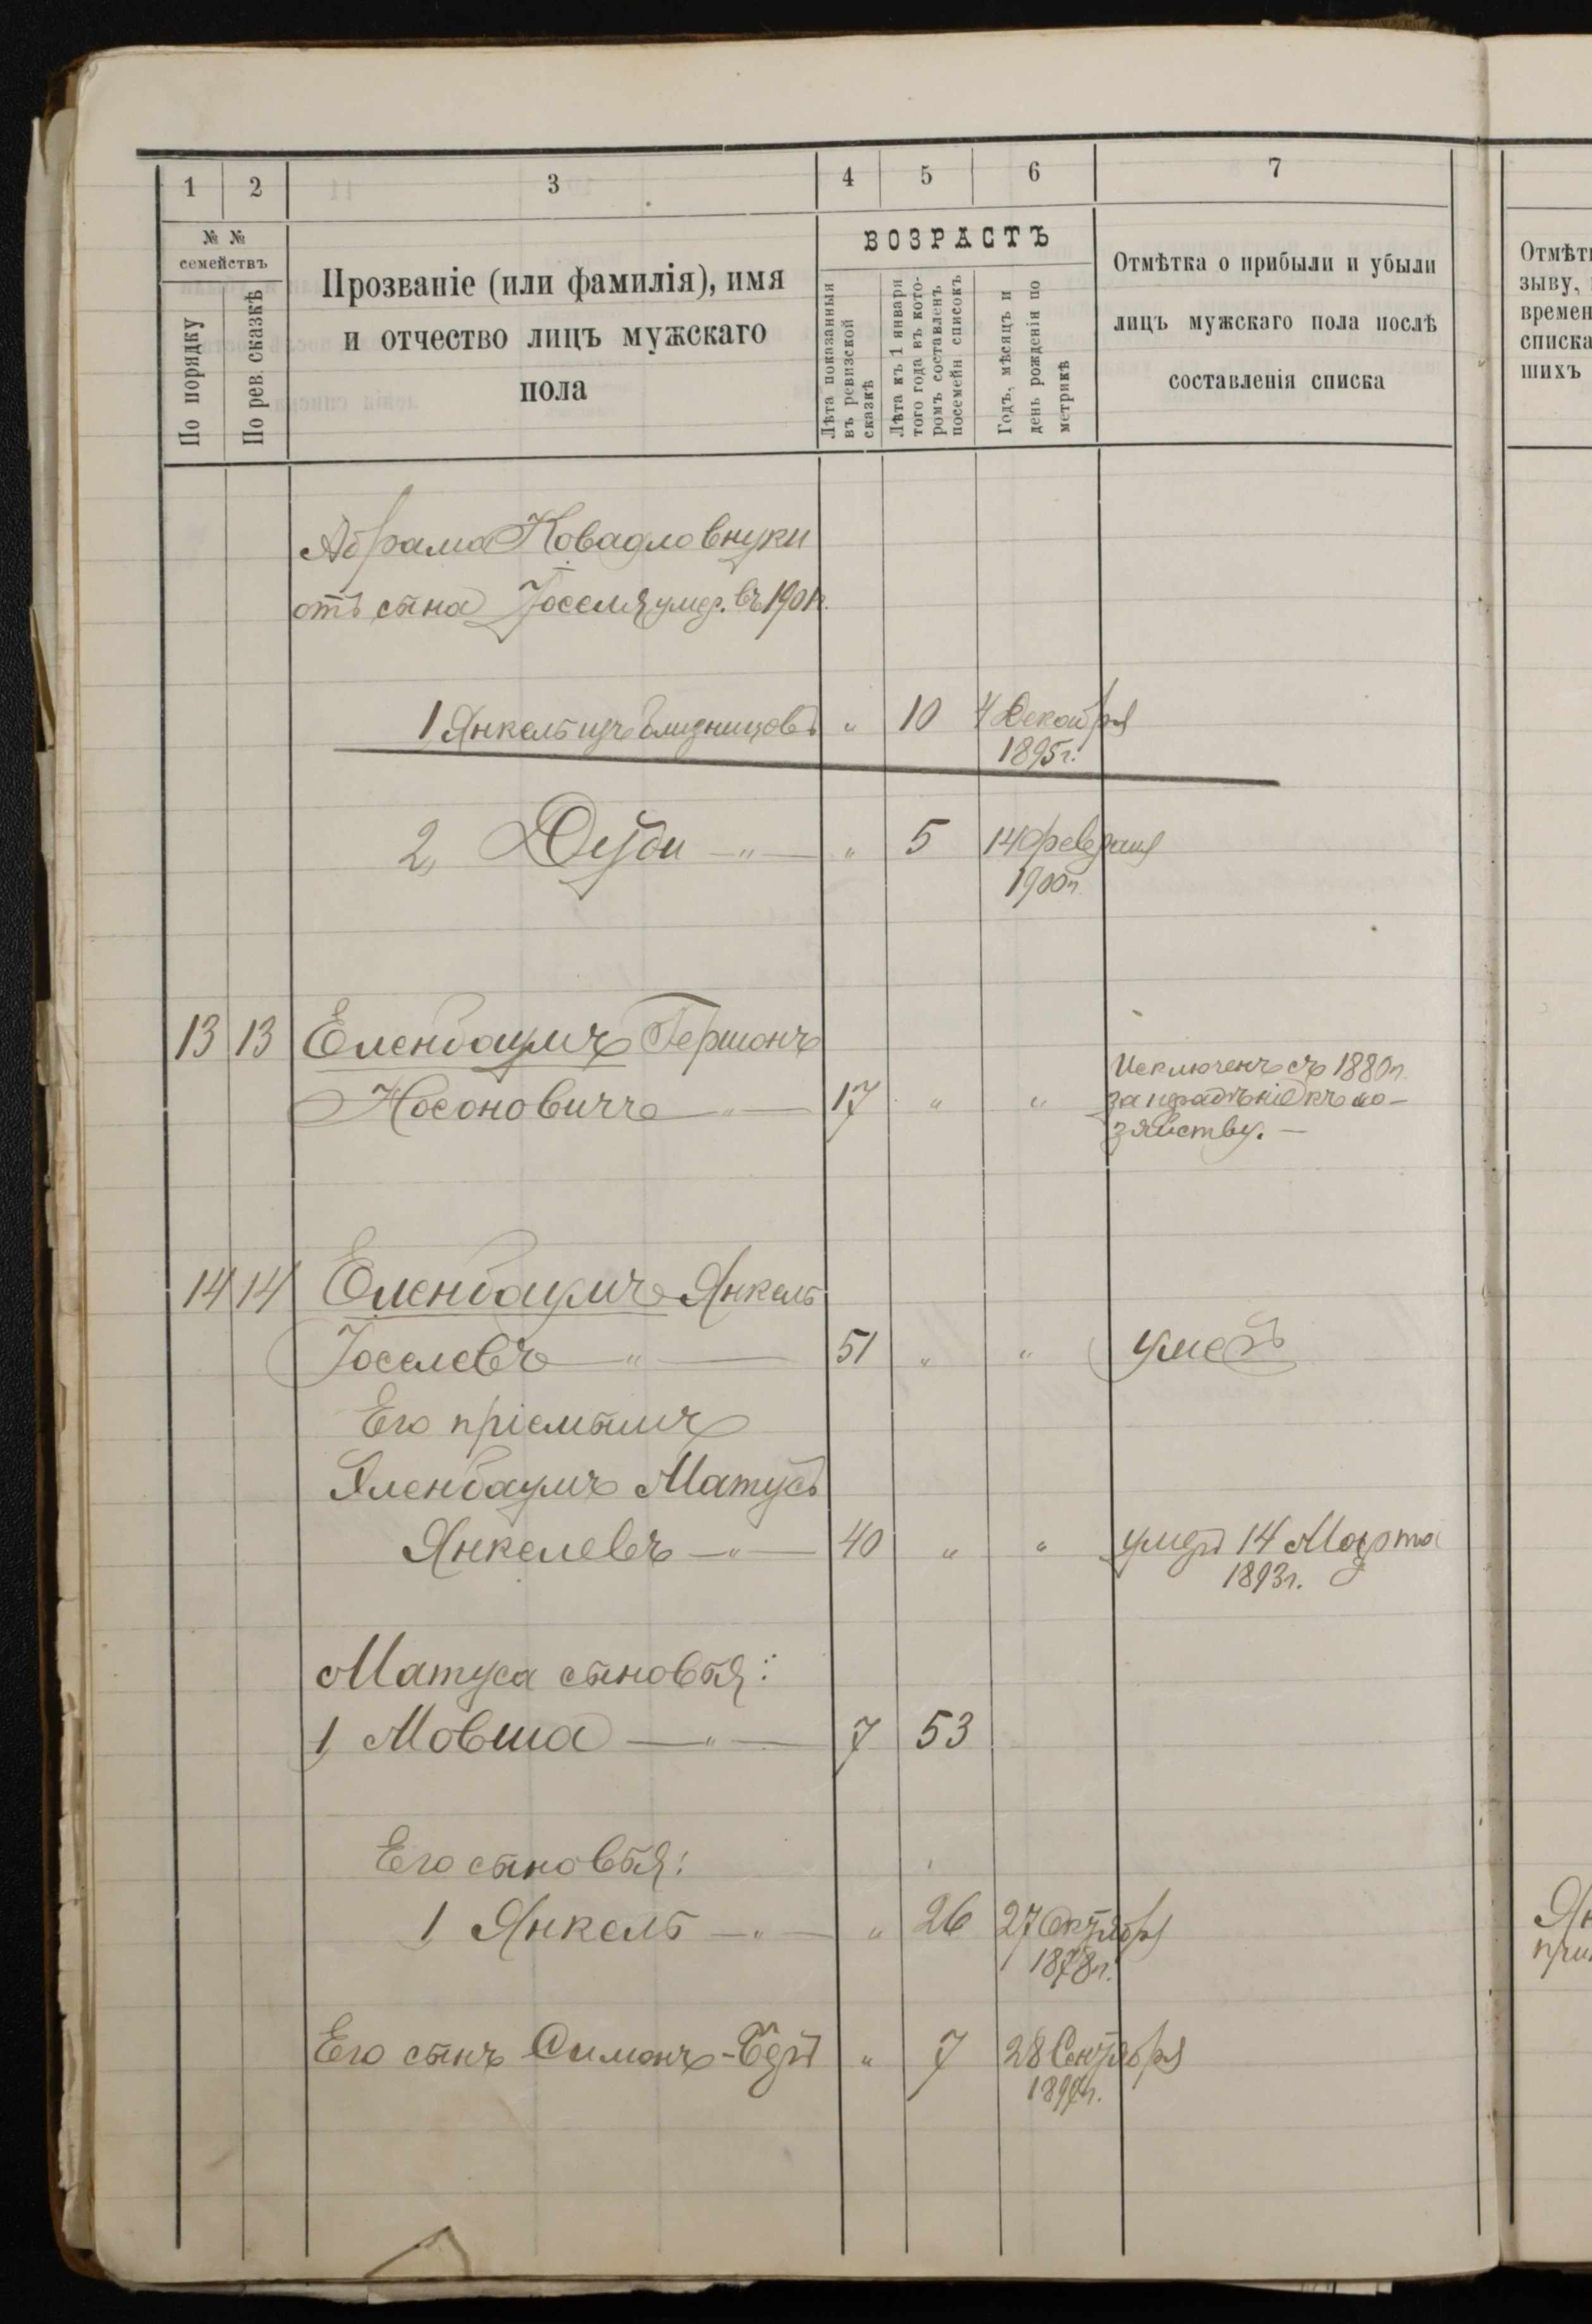 1 2 3 4 5 6 7
№ №
семействъ
По порядку
По рев. сказкѣ
Прозваніе (или фамилія), имя
и отчество лицъ мужскаго
пола
ВОЗРАСТЪ
Лѣта показанныя
въ ревизской
сказкѣ
Лѣта къ 1 января
того года въ кото-
ромъ составленъ
посемейн списокъ
Годъ, мѣсяцъ и
день рожденія по
метрикѣ
Отмѣтка о прибыли и убыли
лицъ мужскаго пола послѣ
составленія списка
Отмѣт
зыву,
времен
списка
шихъ
Абрама внуки
отъ сына Іоселя умер. въ 1901г.
1, Янкель изъ близнецовъ " 10 4 Декабря
1895г.
2, " " 5 14 Февраля
1900г.
13 13 Еленбаумъ Гершонъ
Носоновичъ " 17 " " Исключенъ съ 1880г.
за нерадѣніе къ хо-
зяйству. —
14 14 Еленбаумъ Янкель
Іоселевъ " 51 " " умеръ
Его пріемышъ
Еленбаумъ Матусъ
Янкелевъ " 40 " " умеръ 14 Марта
1893г.
Матуса сыновья:
1, Мовша " 7 53
Его сыновья:
1, Янкель " " 26 27 Октября
1878г.
Его сынъ Симонъ- " 7 28 Сентября
1897г.
Ян
при